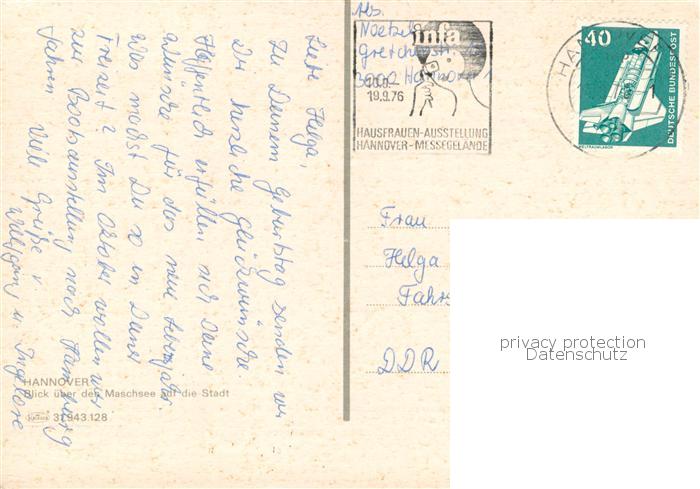 Liebe Helga,
zu Deinem Geburtstag senden wir
Dir herzliche Glückwünsche.
Hoffentlich erfüllen sich Deine
Wünsche für das neue Lebensjahr.
Was machst Du so in Deiner
Freizeit? Im Oktober wollen wir
zur Bootsausstellung nach Hamburg
fahren. Viele Grüße v.
Wolfgang u. Ingelore
HANNOVER
Blick über den Maschsee auf die Stadt
31.943.128
Abs.
Noetzel
Gretchenstr.
3000 Hannover 1
infa
19.9.76
HAUSFRAUEN-AUSSTELLUNG
HANNOVER-MESSEGELÄNDE
HANNOVER
40
DEUTSCHE BUNDESPOST
WELTRAUMLABOR
Frau
Helga
Fahr
DDR
privacy protection
Datenschutz